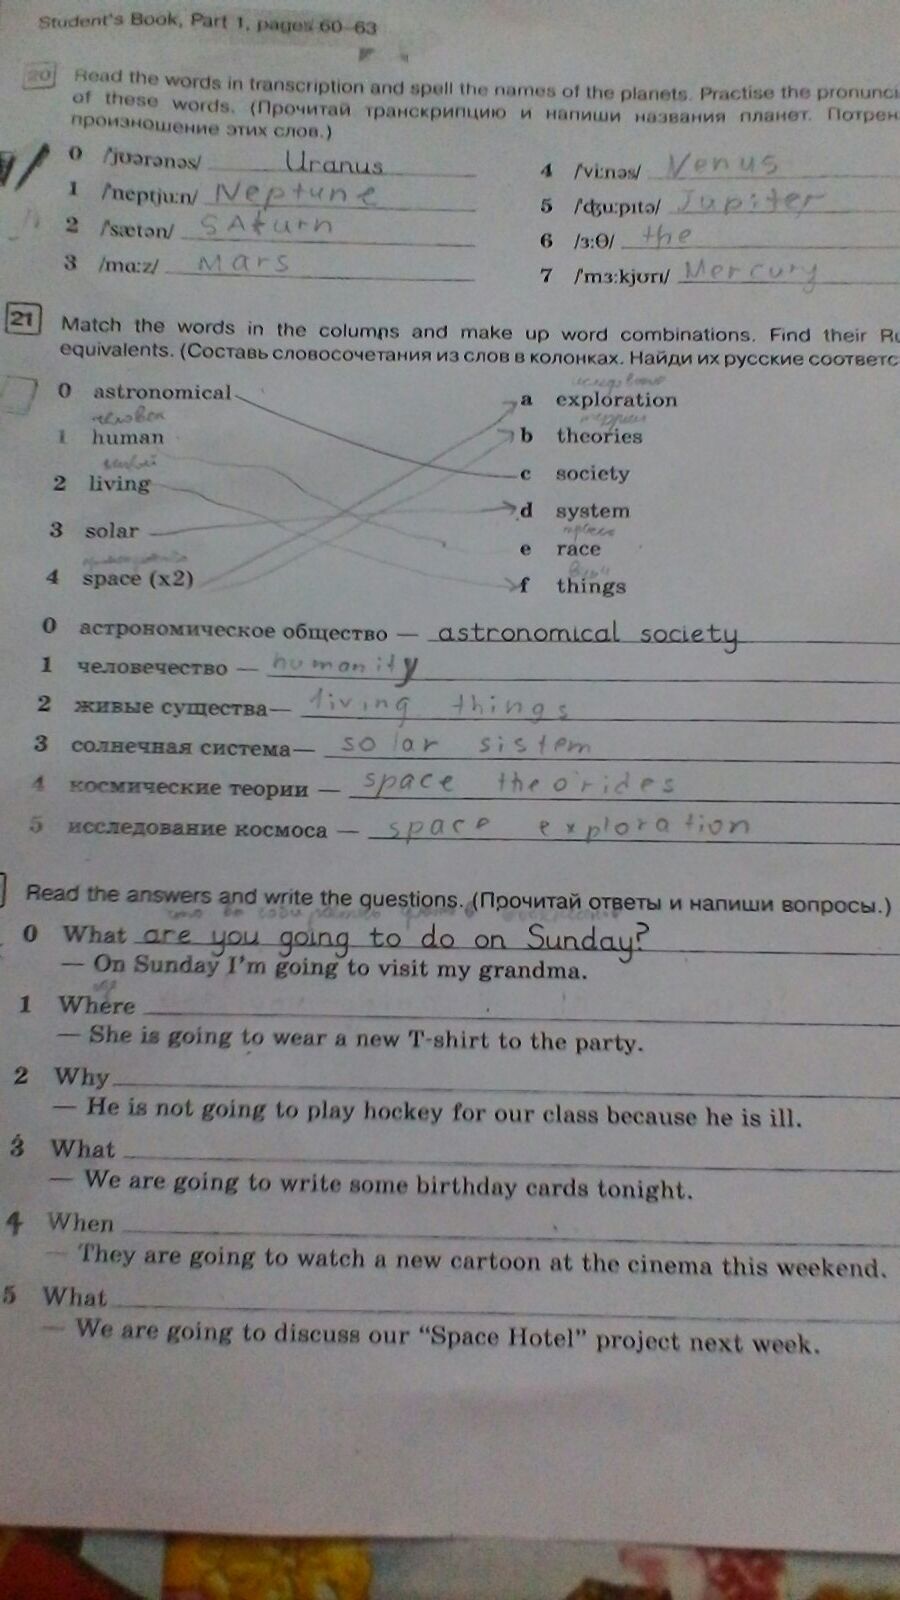 Student's Book, Part 1, pages 60–63
20 Read the words in transcription and spell the names of the planets. Practise the
of these words. (Прочитай транскрипцию и напиши названия планет.
произношение этих слов.)
0 /ˈjʊərənəs/ Uranus
1 /ˈneptjuːn/ Neptune
2 /ˈsætən/ SAturn
3 /mɑːz/ Mars
4 /ˈviːnəs/ Venus
5 /ˈʤuːpɪtə/ Jupiter
6 /ɜːθ/ the
7 /ˈmɜːkjʊrɪ/ Mercury
21 Match the words in the columns and make up word combinations. Find their
equivalents. (Составь словосочетания из слов в колонках. Найди их русские
0 astronomical
человек
1 human
живой
2 living
3 solar
4 space (x2)
a exploration
теории
b theories
c society
d system
e race
вещи
f things
0 астрономическое общество — astronomical society
1 человечество — humanity
2 живые существа— living things
3 солнечная система— solar sistem
4 космические теории — space theorides
5 исследование космоса — space exploration
Read the answers and write the questions. (Прочитай ответы и напиши вопросы.)
0 What are you going to do on Sunday?
— On Sunday I'm going to visit my grandma.
1 Where
— She is going to wear a new T-shirt to the party.
2 Why
— He is not going to play hockey for our class because he is ill.
3 What
— We are going to write some birthday cards tonight.
4 When
— They are going to watch a new cartoon at the cinema this weekend.
5 What
— We are going to discuss our “Space Hotel” project next week.